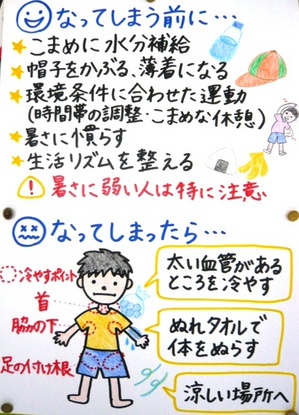 なってしまう前に…
★こまめに水分補給
★帽子をかぶる、薄着になる
★環境条件に合わせた運動
(時間帯の調整・こまめな休憩)
★暑さに慣らす
★生活リズムを整える
! 暑さに弱い人は特に注意
なってしまったら…
冷やすポイント
首
脇の下
足の付け根
太い血管がある
ところを冷やす
ぬれタオルで
体をぬらす
涼しい場所へ